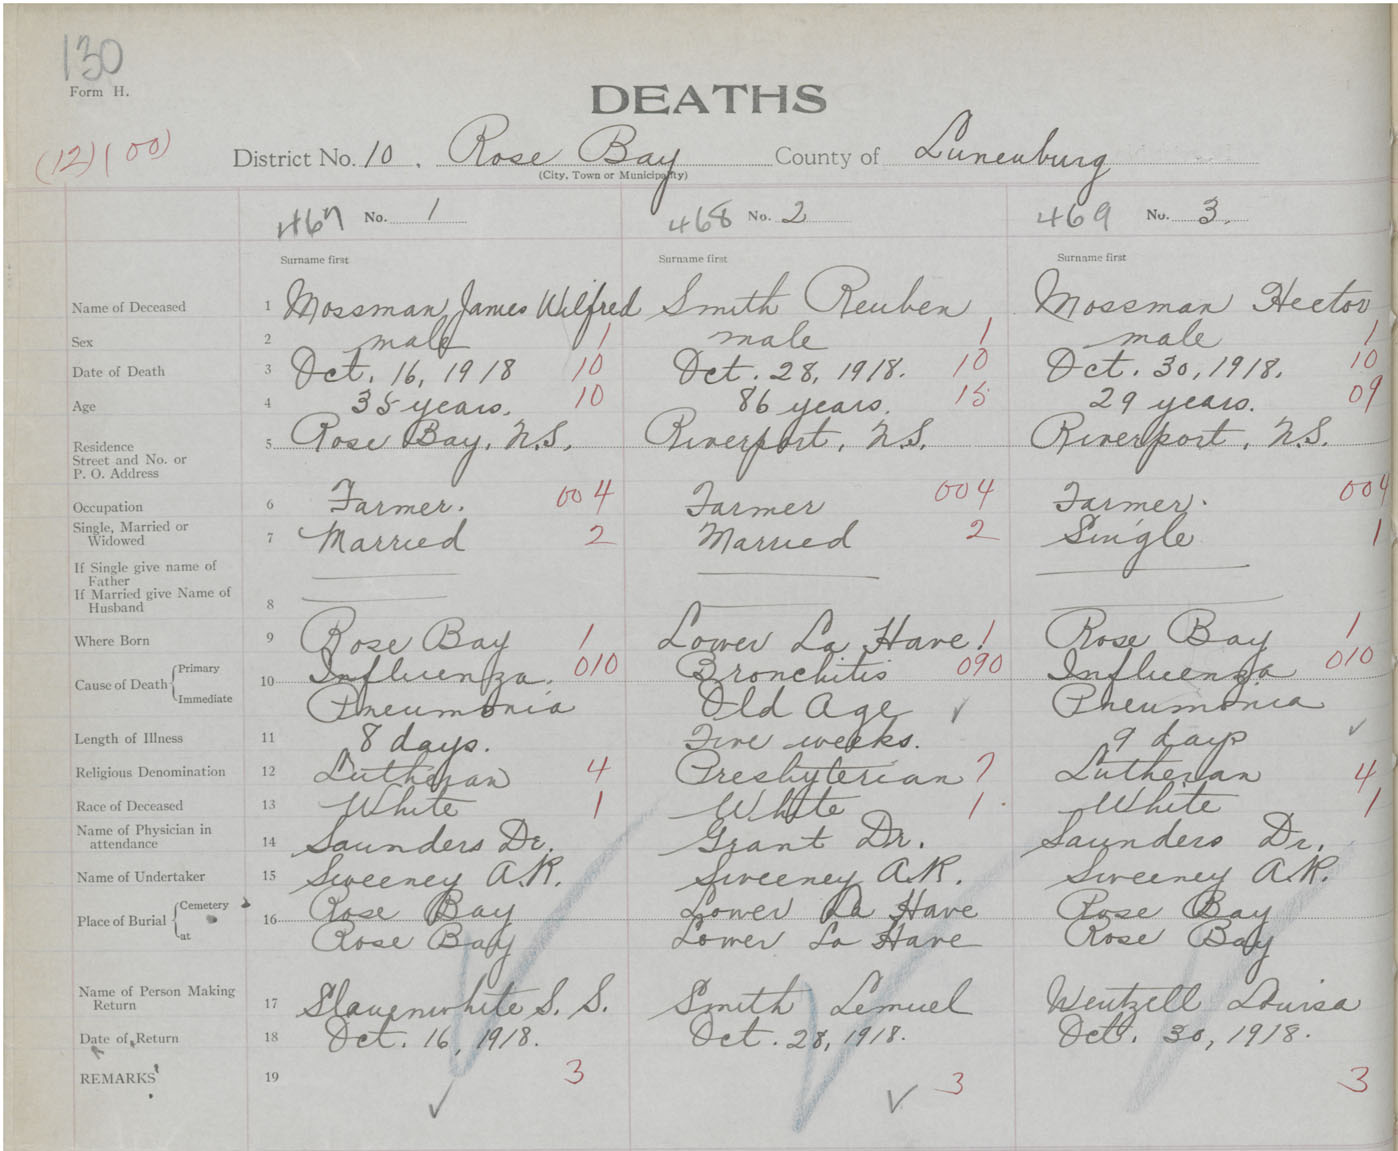 130
Form H.
DEATHS
(12) (00)
District No. 10. Rose Bay County of Lunenburg
(City, Town or Municipality)
467 No. 1 468 No. 2 469 No. 3.
Surname first Surname first Surname first
Name of Deceased 1 Mossman, James Wilfred Smith Reuben Mossman Hector
Sex 2 male 1 male 1 male 1
Date of Death 3 Oct. 16, 1918 10 Oct. 28, 1918. 10 Oct. 30, 1918. 10
Age 4 35 years. 10 86 years. 15 29 years. 09
Residence 5 Rose Bay, N.S. Riverport, N.S. Riverport, N.S.
Street and No. or
P. O. Address
Occupation 6 Farmer. 004 Farmer 004 Farmer. 004
Single, Married or
Widowed 7 Married 2 Married 2 Single 1
If Single give name of
Father
If Married give Name of
Husband 8
Where Born 9 Rose Bay 1 Lower La Have 1 Rose Bay 1
Cause of Death Primary 10 Influenza. 010 Bronchitis 090 Influenza 010
Immediate Pneumonia Old Age Pneumonia
Length of Illness 11 8 days. Five weeks. 9 days
Religious Denomination 12 Lutheran 4 Presbyterian 7 Lutheran 4
Race of Deceased 13 White 1 White 1 White 1
Name of Physician in
attendance 14 Saunders Dr. Grant Dr. Saunders Dr.
Name of Undertaker 15 Sweeney A.R. Sweeney A.R. Sweeney A.R.
Place of Burial Cemetery 16 Rose Bay Lower La Have Rose Bay
at Rose Bay Lower La Have Rose Bay
Name of Person Making
Return 17 Slauenwhite S. S. Smith Lemuel Wentzell Louisa
Date of Return 18 Oct. 16, 1918. Oct. 28, 1918. Oct. 30, 1918.
REMARKS 19 3 3 3